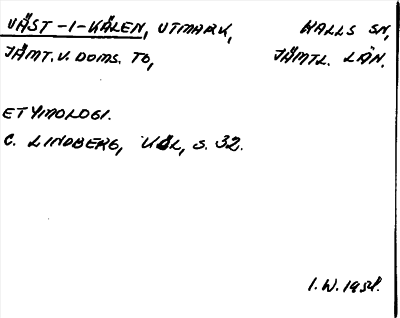 VÄST-I-KÅLEN, UTMARK, HALLS SN,
JÄMT. V. DOMS. TO, JÄMTL. LÄN.
ETYMOLOGI.
C. LINDBERG, KÖL, S. 32.
I.W. 1951.